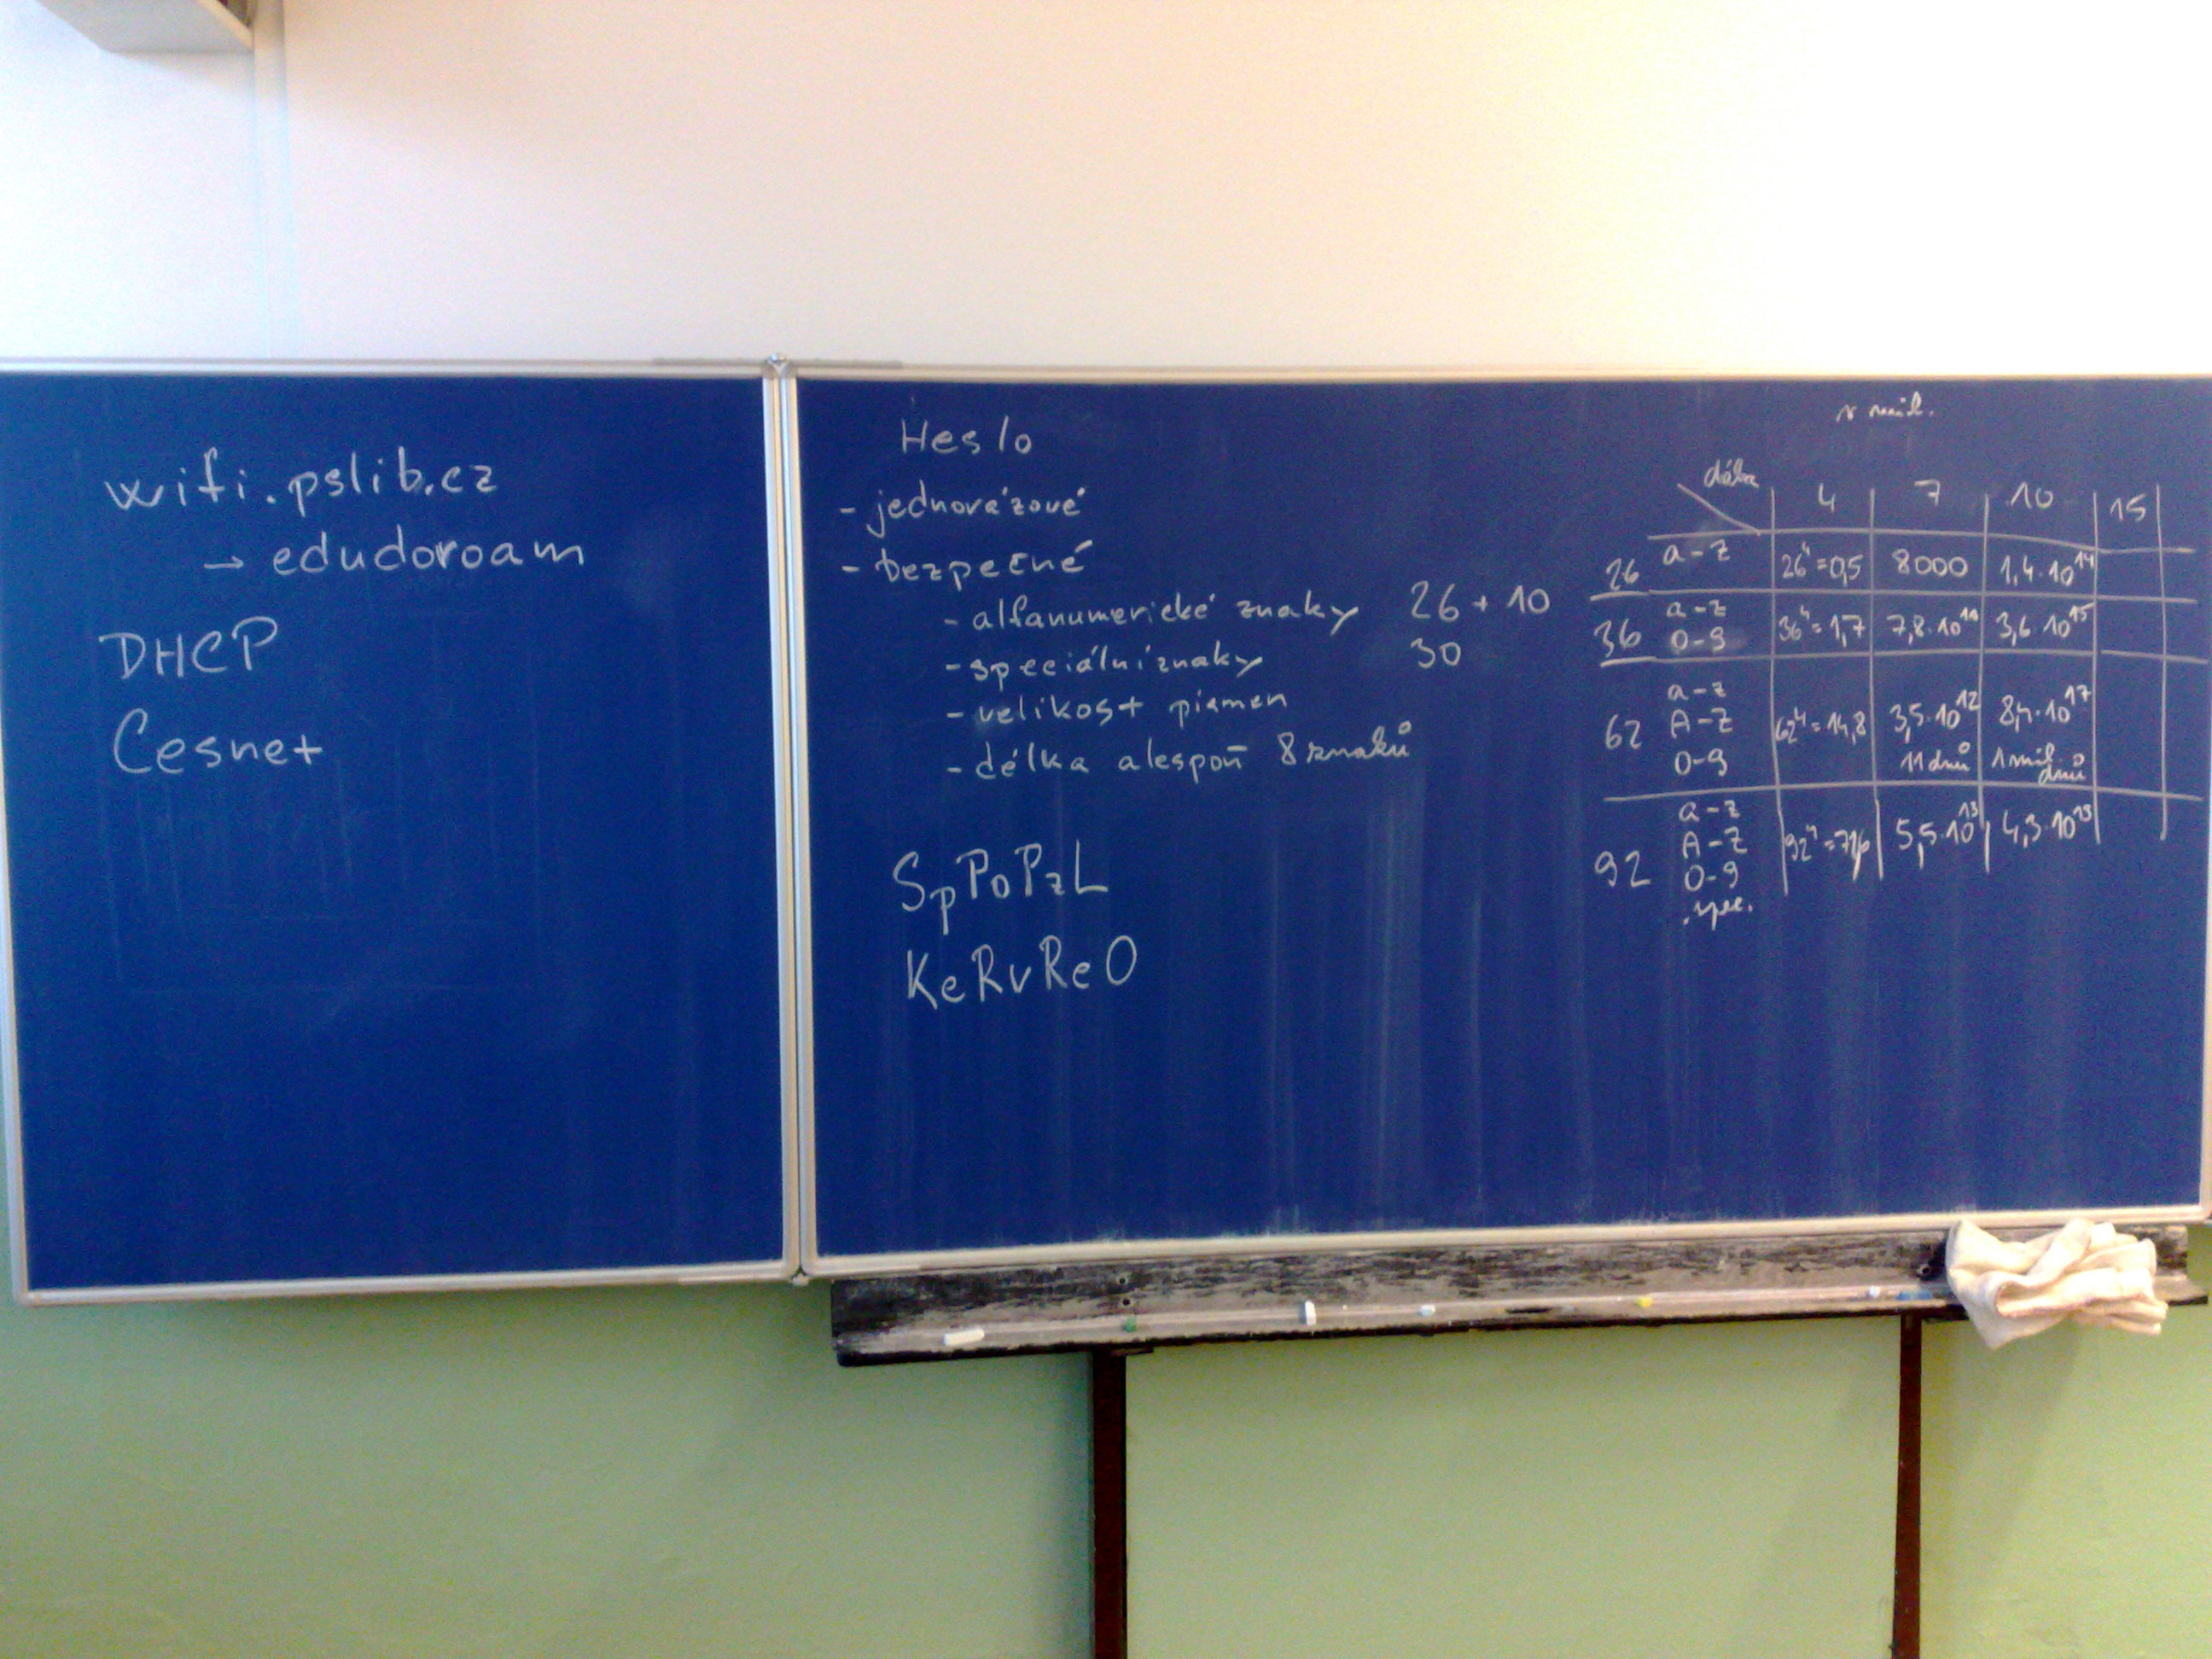 wifi.pslib.cz
→ edudoroam
DHCP
Cesnet
Heslo
- jednorázové
- bezpečné
- alfanumerické znaky 26 + 10
- speciální znaky 30
- velikost pismen
- délka alespoň 8 znaků
SpPoPzL
KeRvReO
v mil.
délka 4 7 10 15
26 a-z 26⁴=0,5 8000 1,4·10¹⁴
36 a-z 36⁴=1,7 7,8·10¹⁰ 3,6·10¹⁵
0-9
62 a-z 62⁴=14,8 3,5·10¹² 8,4·10¹⁷
A-Z
0-9 11 dnů 1 mil. dnů
92 a-z 92⁴=71,6 5,5·10¹³ 4,3·10¹⁹
A-Z
0-9
spec.